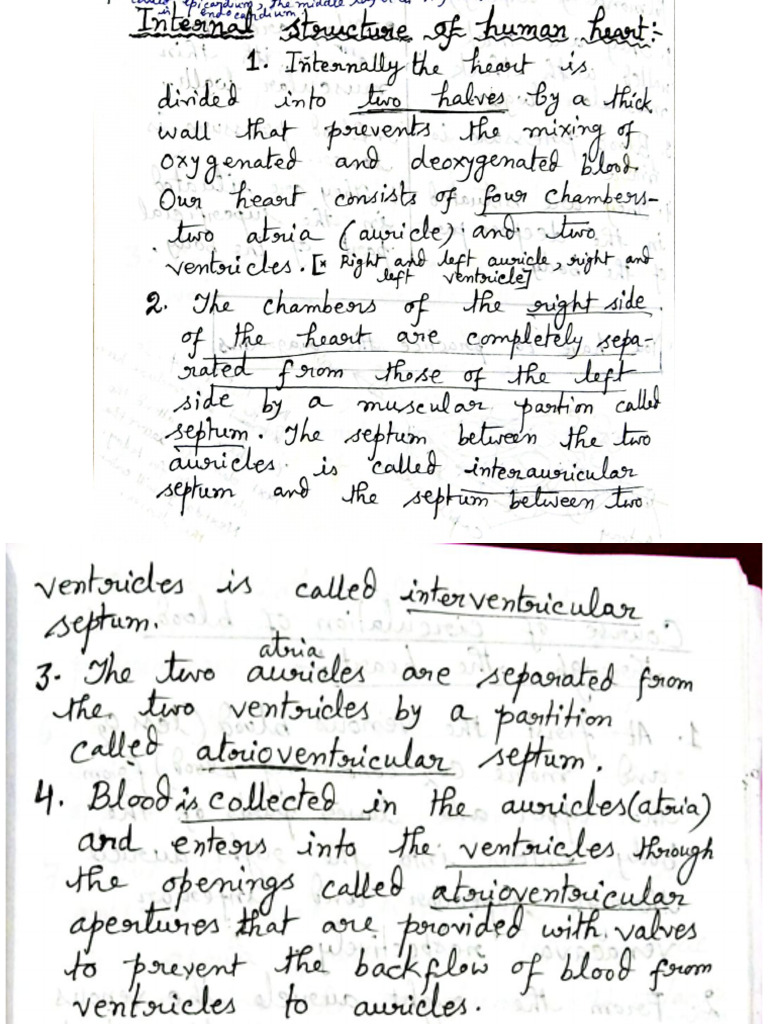 epicardium, the middle
is endocardium
Internal structure of human heart:-
1. Internally the heart is
divided into two halves by a thick
wall that prevents the mixing of
oxygenated and deoxygenated blood.
Our heart consists of four chambers-
two atria (auricle) and two
ventricles. [* Right and left auricle, right and
left ventricle]
2. The chambers of the right side
of the heart are completely sepa-
rated from those of the left
side by a muscular partion called
septum. The septum between the two
auricles is called interauricular
septum and the septum between two
ventricles is called interventricular
septum.
atria
3. The two auricles are separated from
the two ventricles by a partition
called atrioventricular septum.
4. Blood is collected in the auricles (atria)
and enters into the ventricles through
the openings called atrioventricular
apertures that are provided with valves
to prevent the backflow of blood from
ventricles to auricles.